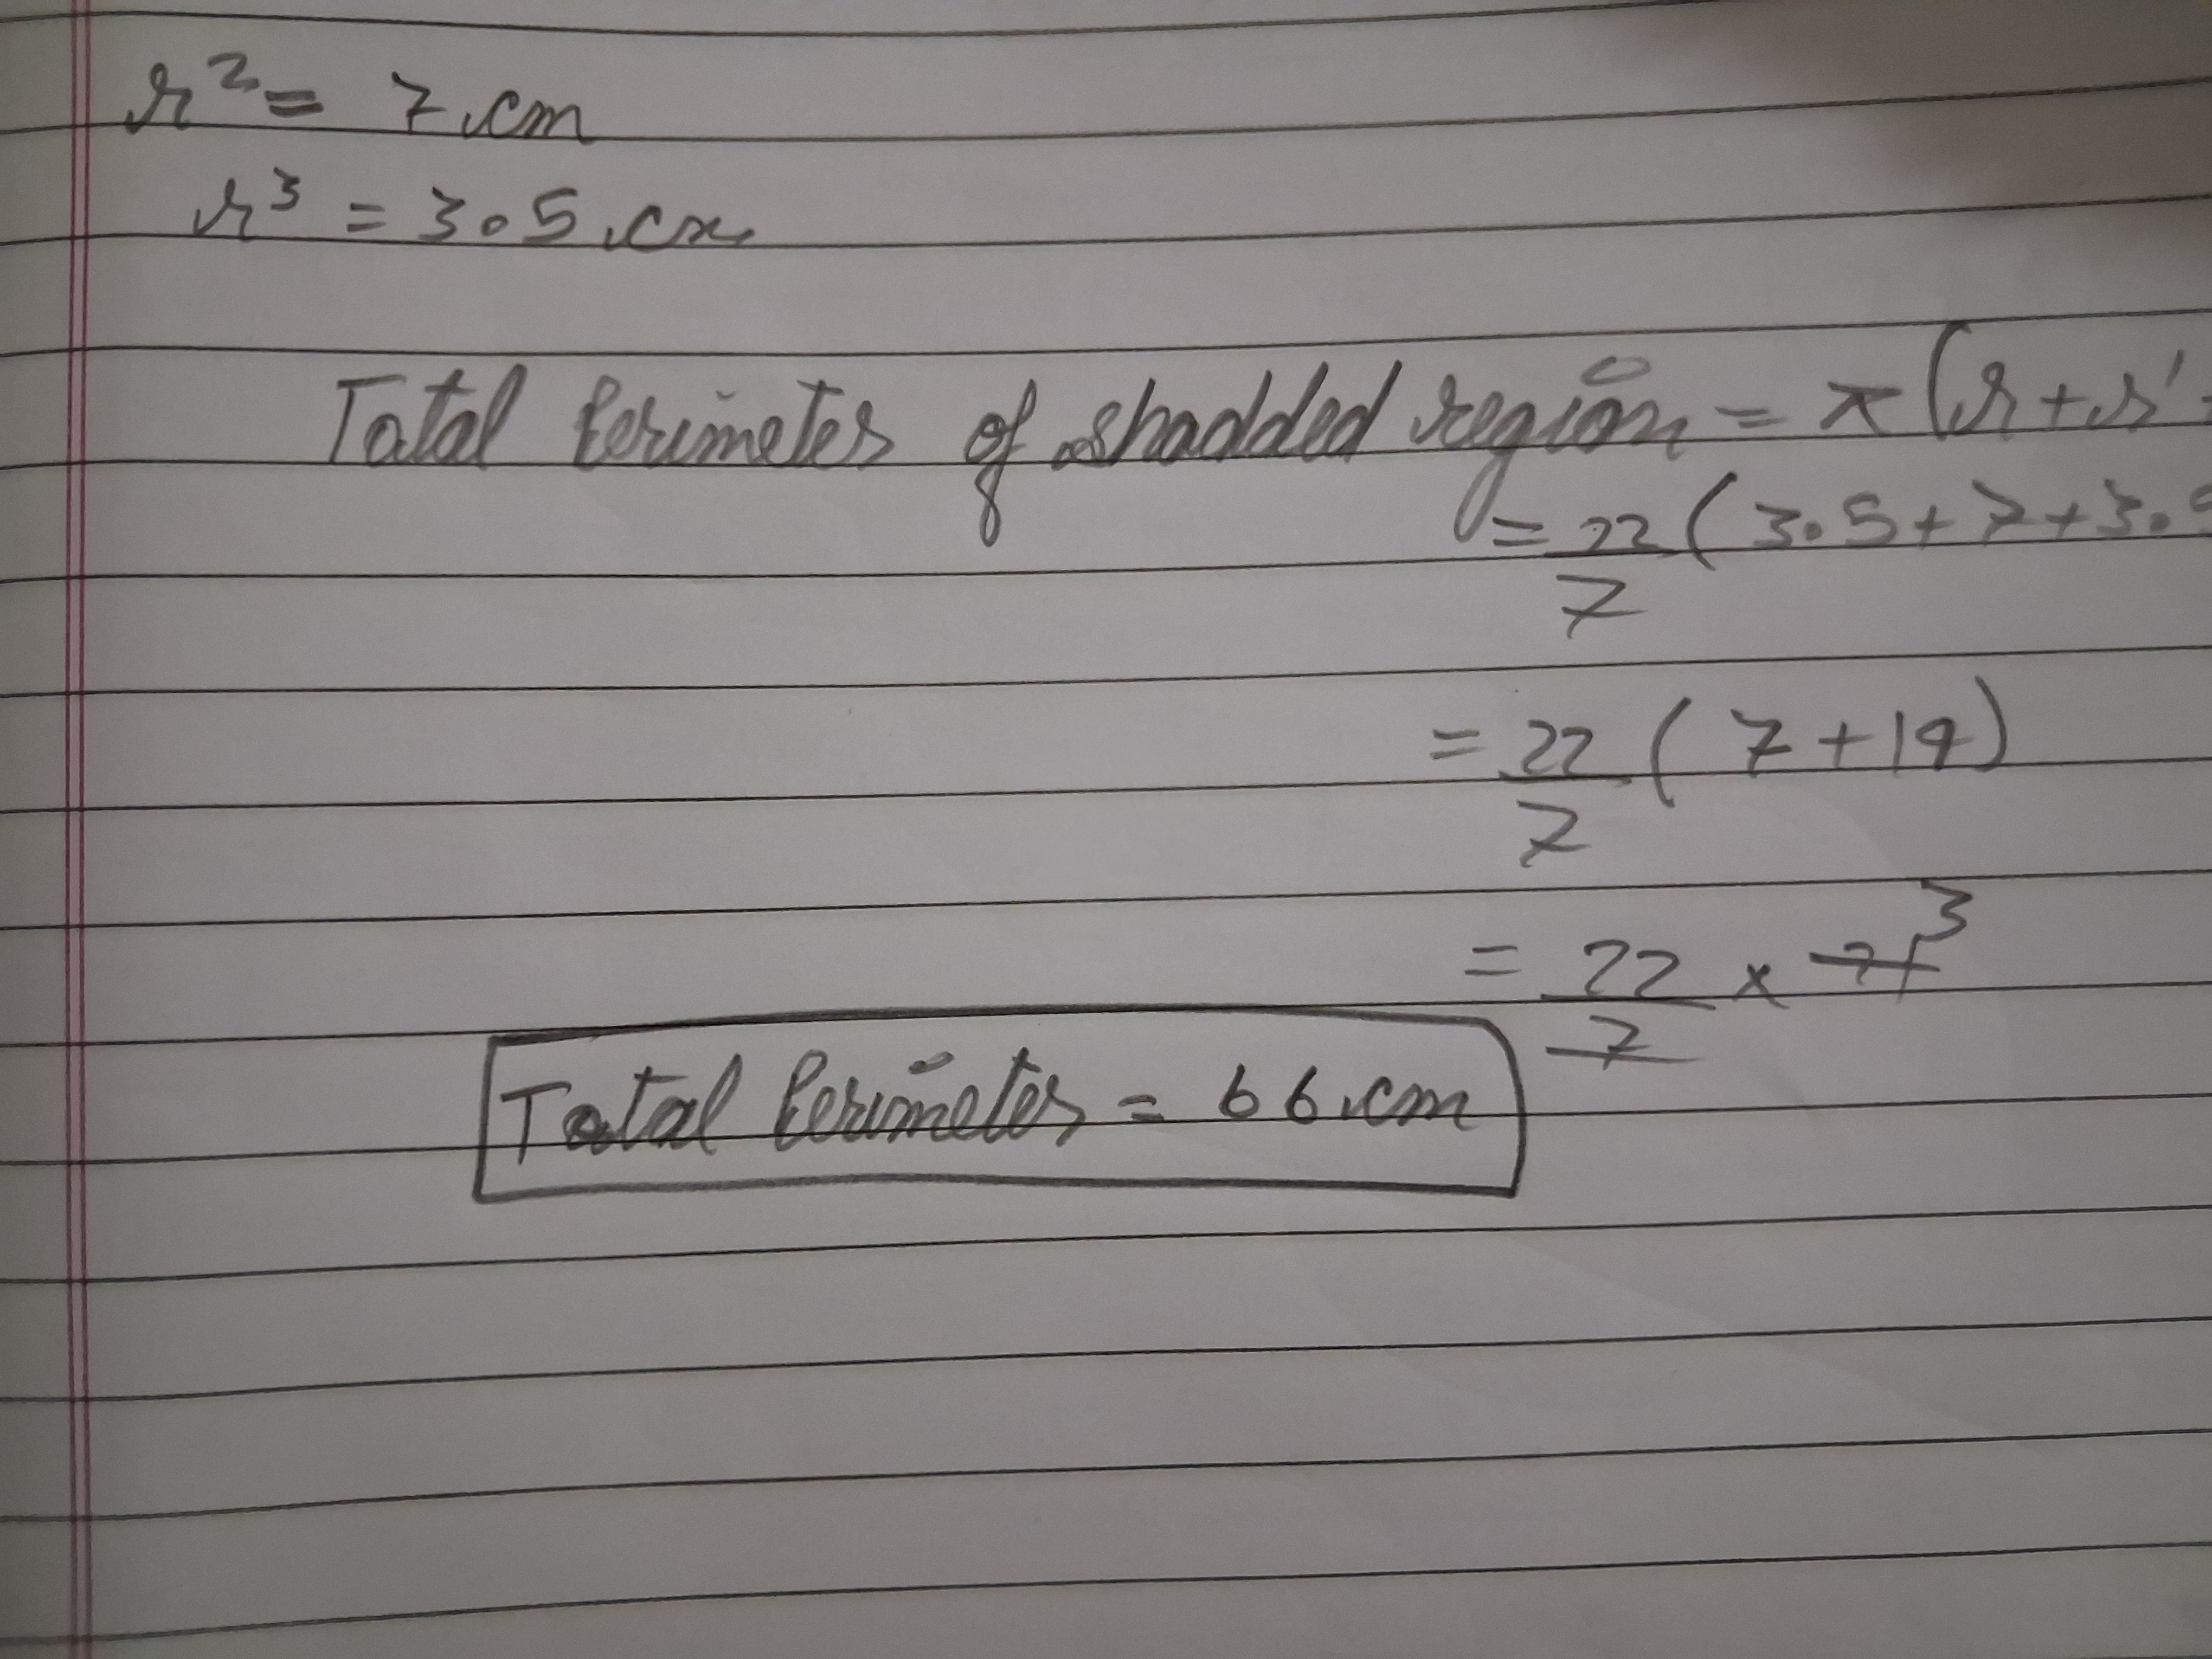 r² = 7 cm
r³ = 3.5 cm
Total Perimeter of shadded region = π (r + r'
= 22/7 ( 3.5 + 7 + 3.5
= 22/7 ( 7 + 14 )
= 22/7 × 21 3
Total Perimeter = 66 cm